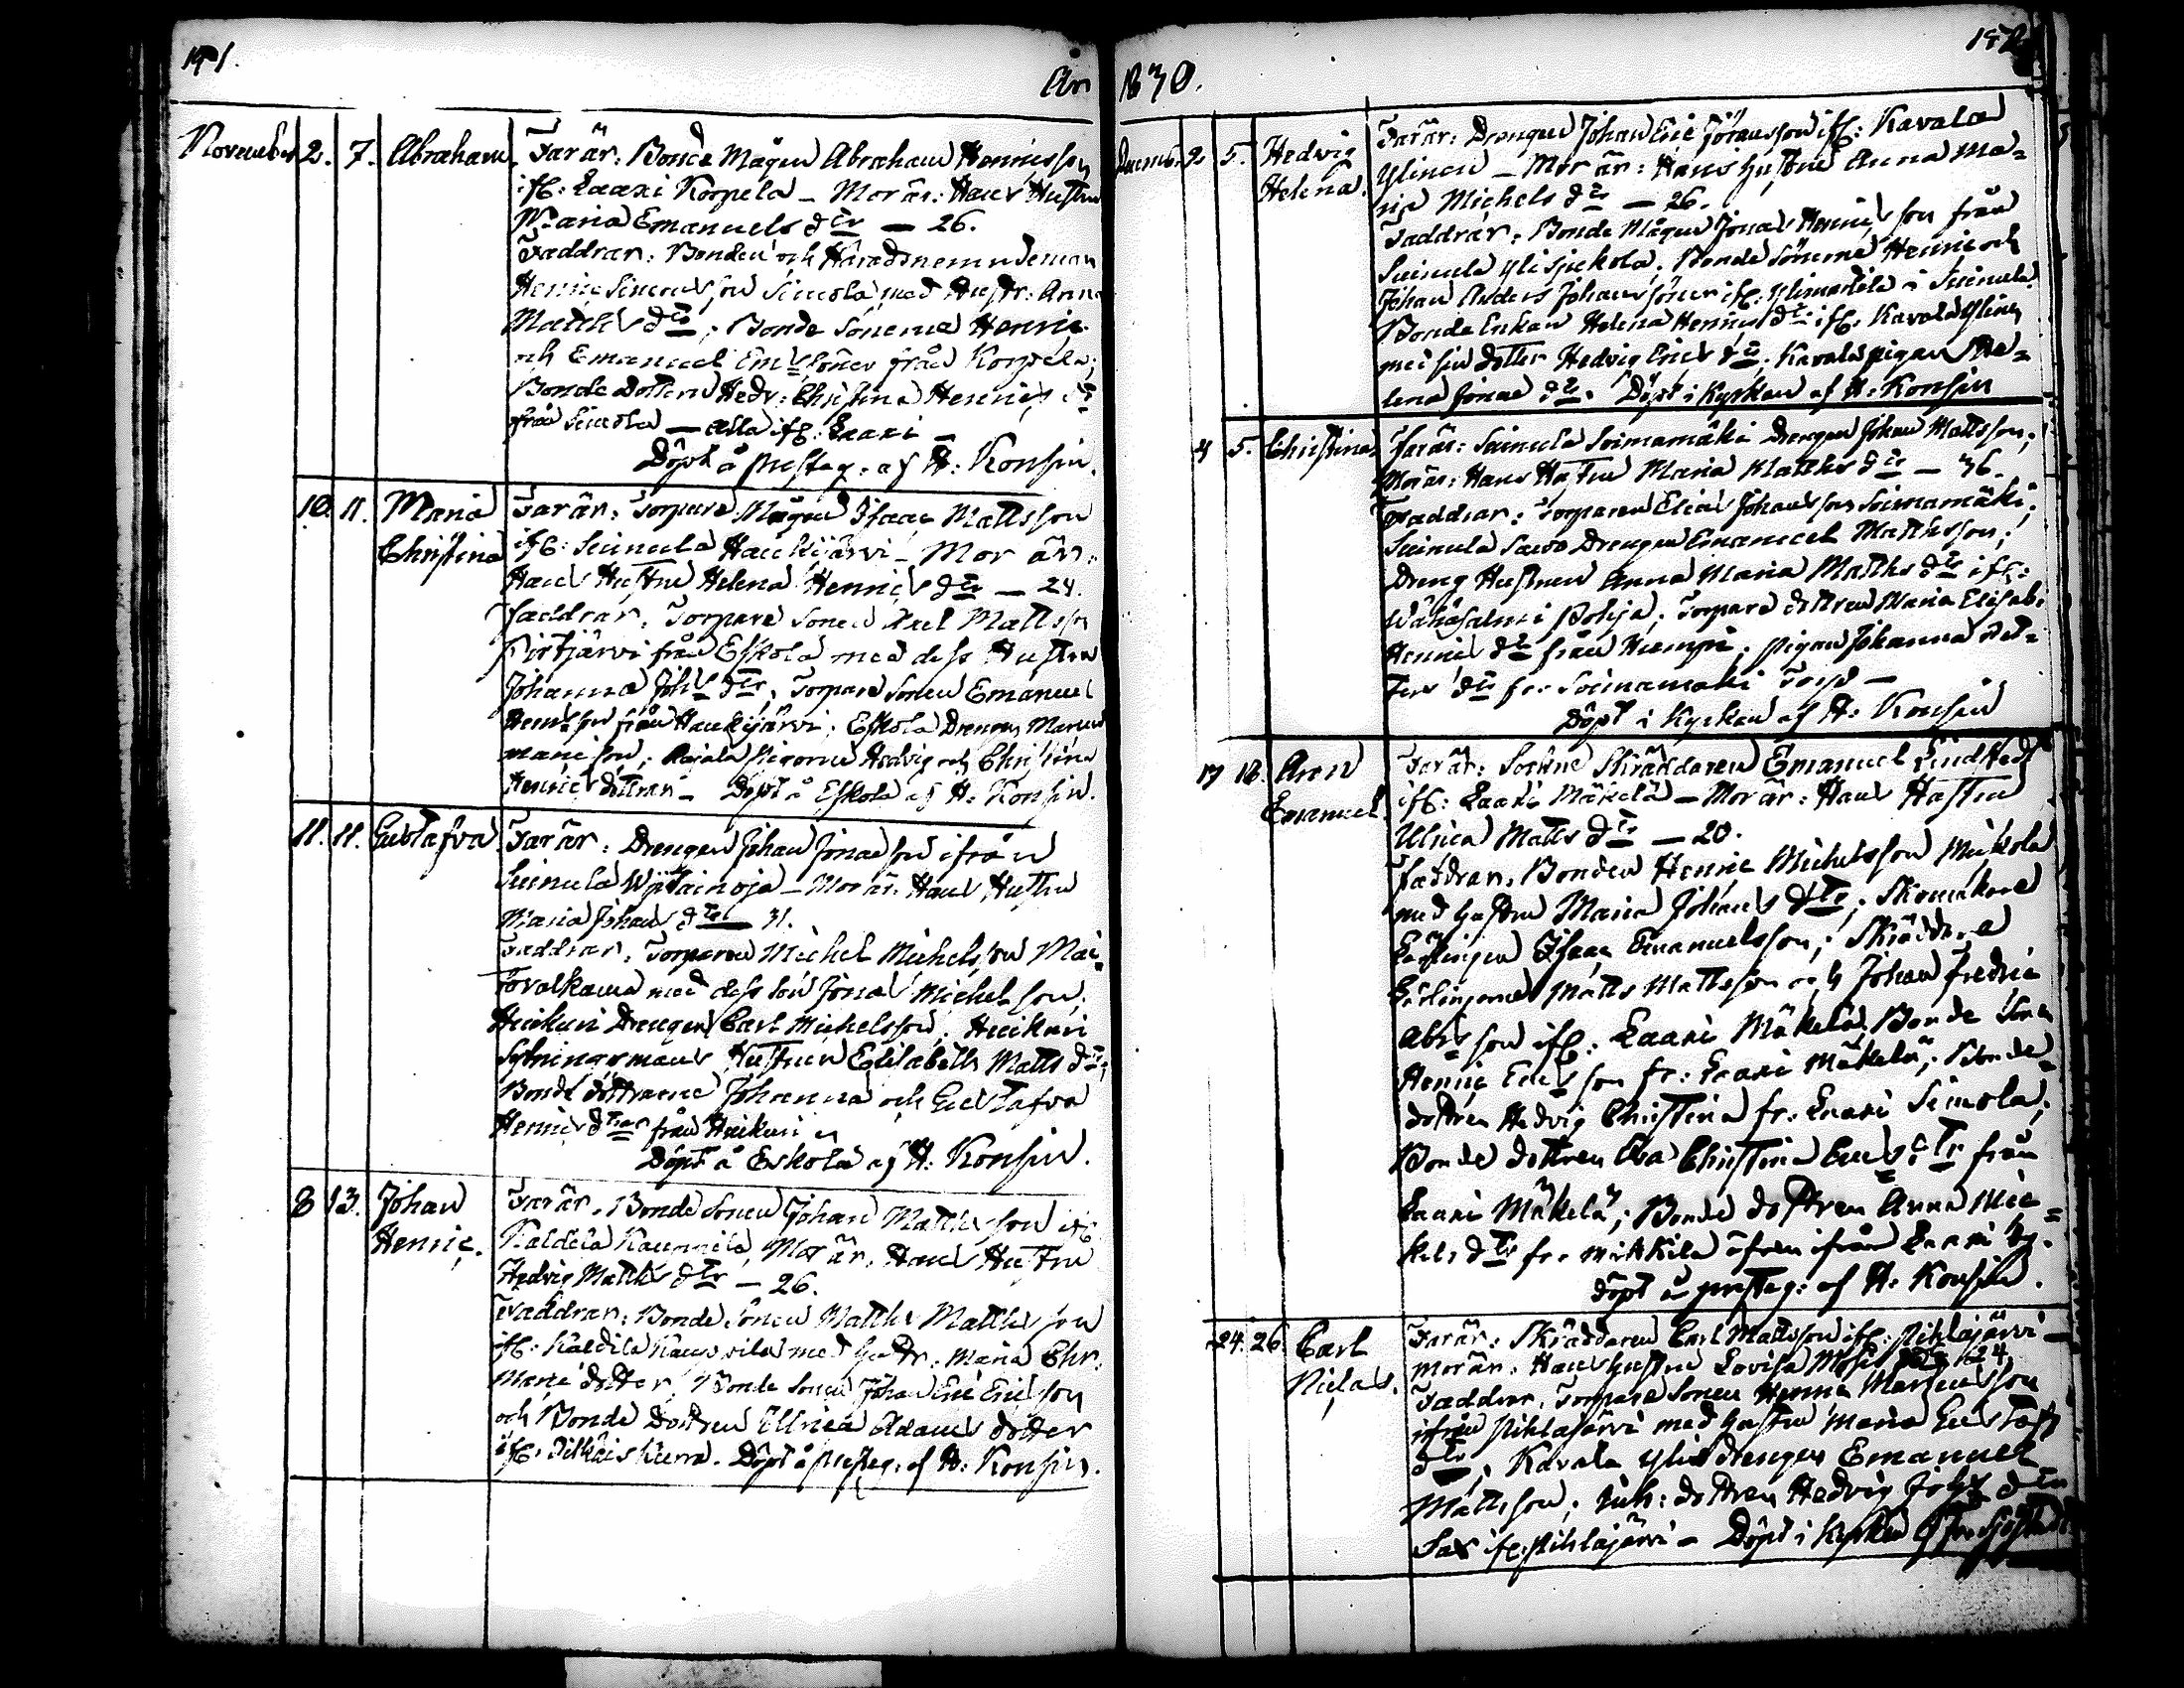 151.
År
November 2. 7. Abraham. Far är: Bonde Mågen Abraham Henricsson
ifr: Laaxi Korpela – Mor är: Hans Hustru
Maria Emanuels dtr – 26.
Faddrar: Bonden och Häradsnemndeman
Henric Simonsson Simola med Hustr: Anna
Matths dtr; Bonde Sönerne Henric
och Emanuel Em:s Söner från Korpela;
Bonde Dottern Hedv: Christina Henrics dtr
från Simola – alla ifr: Laaxi –
Döpt å presteg: af H: Konsin.
10. 11. Maria Far är: Torpare Mågen Isaac Mattsson
Christina ifr: Suinula Haukijärvi – Mor är:
Hans Hustru Helena Henrics dtr – 24.
Faddrar: Torpare Sonen Axel Mattsson
från Eskola med dess Hustru
Johanna Joh:s dtr, Torpare Sonen Emanuel
Hen:s son från Haukijärvi; Eskola Drengen
son; pigorne Hedvig och Christina
Henrics döttrar – Döpt å Eskola af H: Konsin.
11. 11. Gustafva Far är: Drengen Johan Jonasson ifrån
Suinula – Mor är: Hans Hustru
Maria Johans dtr – 31.
Faddrar: Torparen Michel Michelsson
med dess Son Jonas Michelsson;
Huikuri Drengen Carl Michelsson; Huikuri
Sytningsmans Hustrun Elisabeth Matts dtr,
Bonde döttrarne Johanna och Gustafva
Henrics dtrar från Huikuri
Döpt å Eskola af H: Konsin.
8 13. Johan Far är: Bonde Sonen Johan Matthsson ifr:
Henric. Kaldila Kauppila, Mor är: Hans Hustru
Hedvig Matths dtr – 26.
Faddrar: Bonde Sonen Matths Matthsson
ifr: Kaldila Kauppila med Hustr: Maria Chr.
dotter; Bonde Sonen Johan Eric Ericsson
och Bonde Dottren Ulrica Adams dotter
ifr: Döpt å Presteg: af H: Konsin.
152
1830.
Decemb. 2 5. Hedvig Far är: Drengen Johan Eric Jöransson ifr: Kavala
Helena. Ylinen – Mor är: Hans Hustru Anna Ma=
ria Michels dtr – 26.
Faddrar: Bonde Mågen Jonas Henricsson från
Suinula Ylisjukola. Bonde Sönerne Henric och
Johan Anders Johans Söner ifr: i Suinula
Bonde Enkan Helena Henrics dtr ifr: Kavala Ylinen
med sin dotter Hedvig Erics dtr; Kavala pigan He=
lena Jonae dtr. Döpt i Kyrkan af H: Konsin
4 5. Christina Far är: Suinula Soimamäki Drengen Johan Mattsson;
Mor är: Hans Hustru Maria Matths dtr – 36.
Faddrar: Torparen Elias Johansson Soimamäki;
Suinula Drengen Emanuel Matthsson;
Dreng Hustrun Anna Maria Matths dtr ifr:
Wähäsalmi Pohja; Torpare dottren Maria Elisab:
Henrics dtr från; pigan Johanna Pet=
ters dtr fr: Soimamäki Torp –
Döpt i Kyrkan af H: Konsin
17 18. Aron Far är: Sockne Skräddaren Emanuel Lindstedt
Emanuel. ifr: Laaxi Mäkelä – Mor är: Hans Hustru
Ulrica Matts dtr – 20.
Faddrar: Bonden Henric Michelsson Mickola
med hustru Maria Johans dtr; Skomakare
Lärlingen Isaac Emanuelsson; Skräddare
Lärlingarne Matts Mattsson och Johan Fredric
Abr:s son ifr: Laaxi Mäkelä; Bonde Sonen
Henric Ericsson fr: Laaxi Mäkelä; Bonde
dottren Hedvig Christina fr: Laaxi Simola;
Bonde dottren Eva Christina Erics dtr från
Laaxi Mäkelä; Bonde dottren Anna Mic=
hels dtr fr: Mickila äfven ifrån Laaxi by.
Döpt å presteg: af H: Konsin.
24. 26. Carl Far är: Skräddaren Carl Mattsson ifr: Pihlajärvi –
Niclas. Mor är: Hans hustru Lovisa dtr 24
Faddrar: Torpare Sonen Henric Mårtensson
ifrån Pihlajärvi med hustru Maria Gustafs
dtr; Kavala Ylis Drengen Emanuel
Mattsson; Inh: dottren Hedvig Joh:s dtr
Sax ifr: Pihlajärvi – Döpt i Kyrkan af